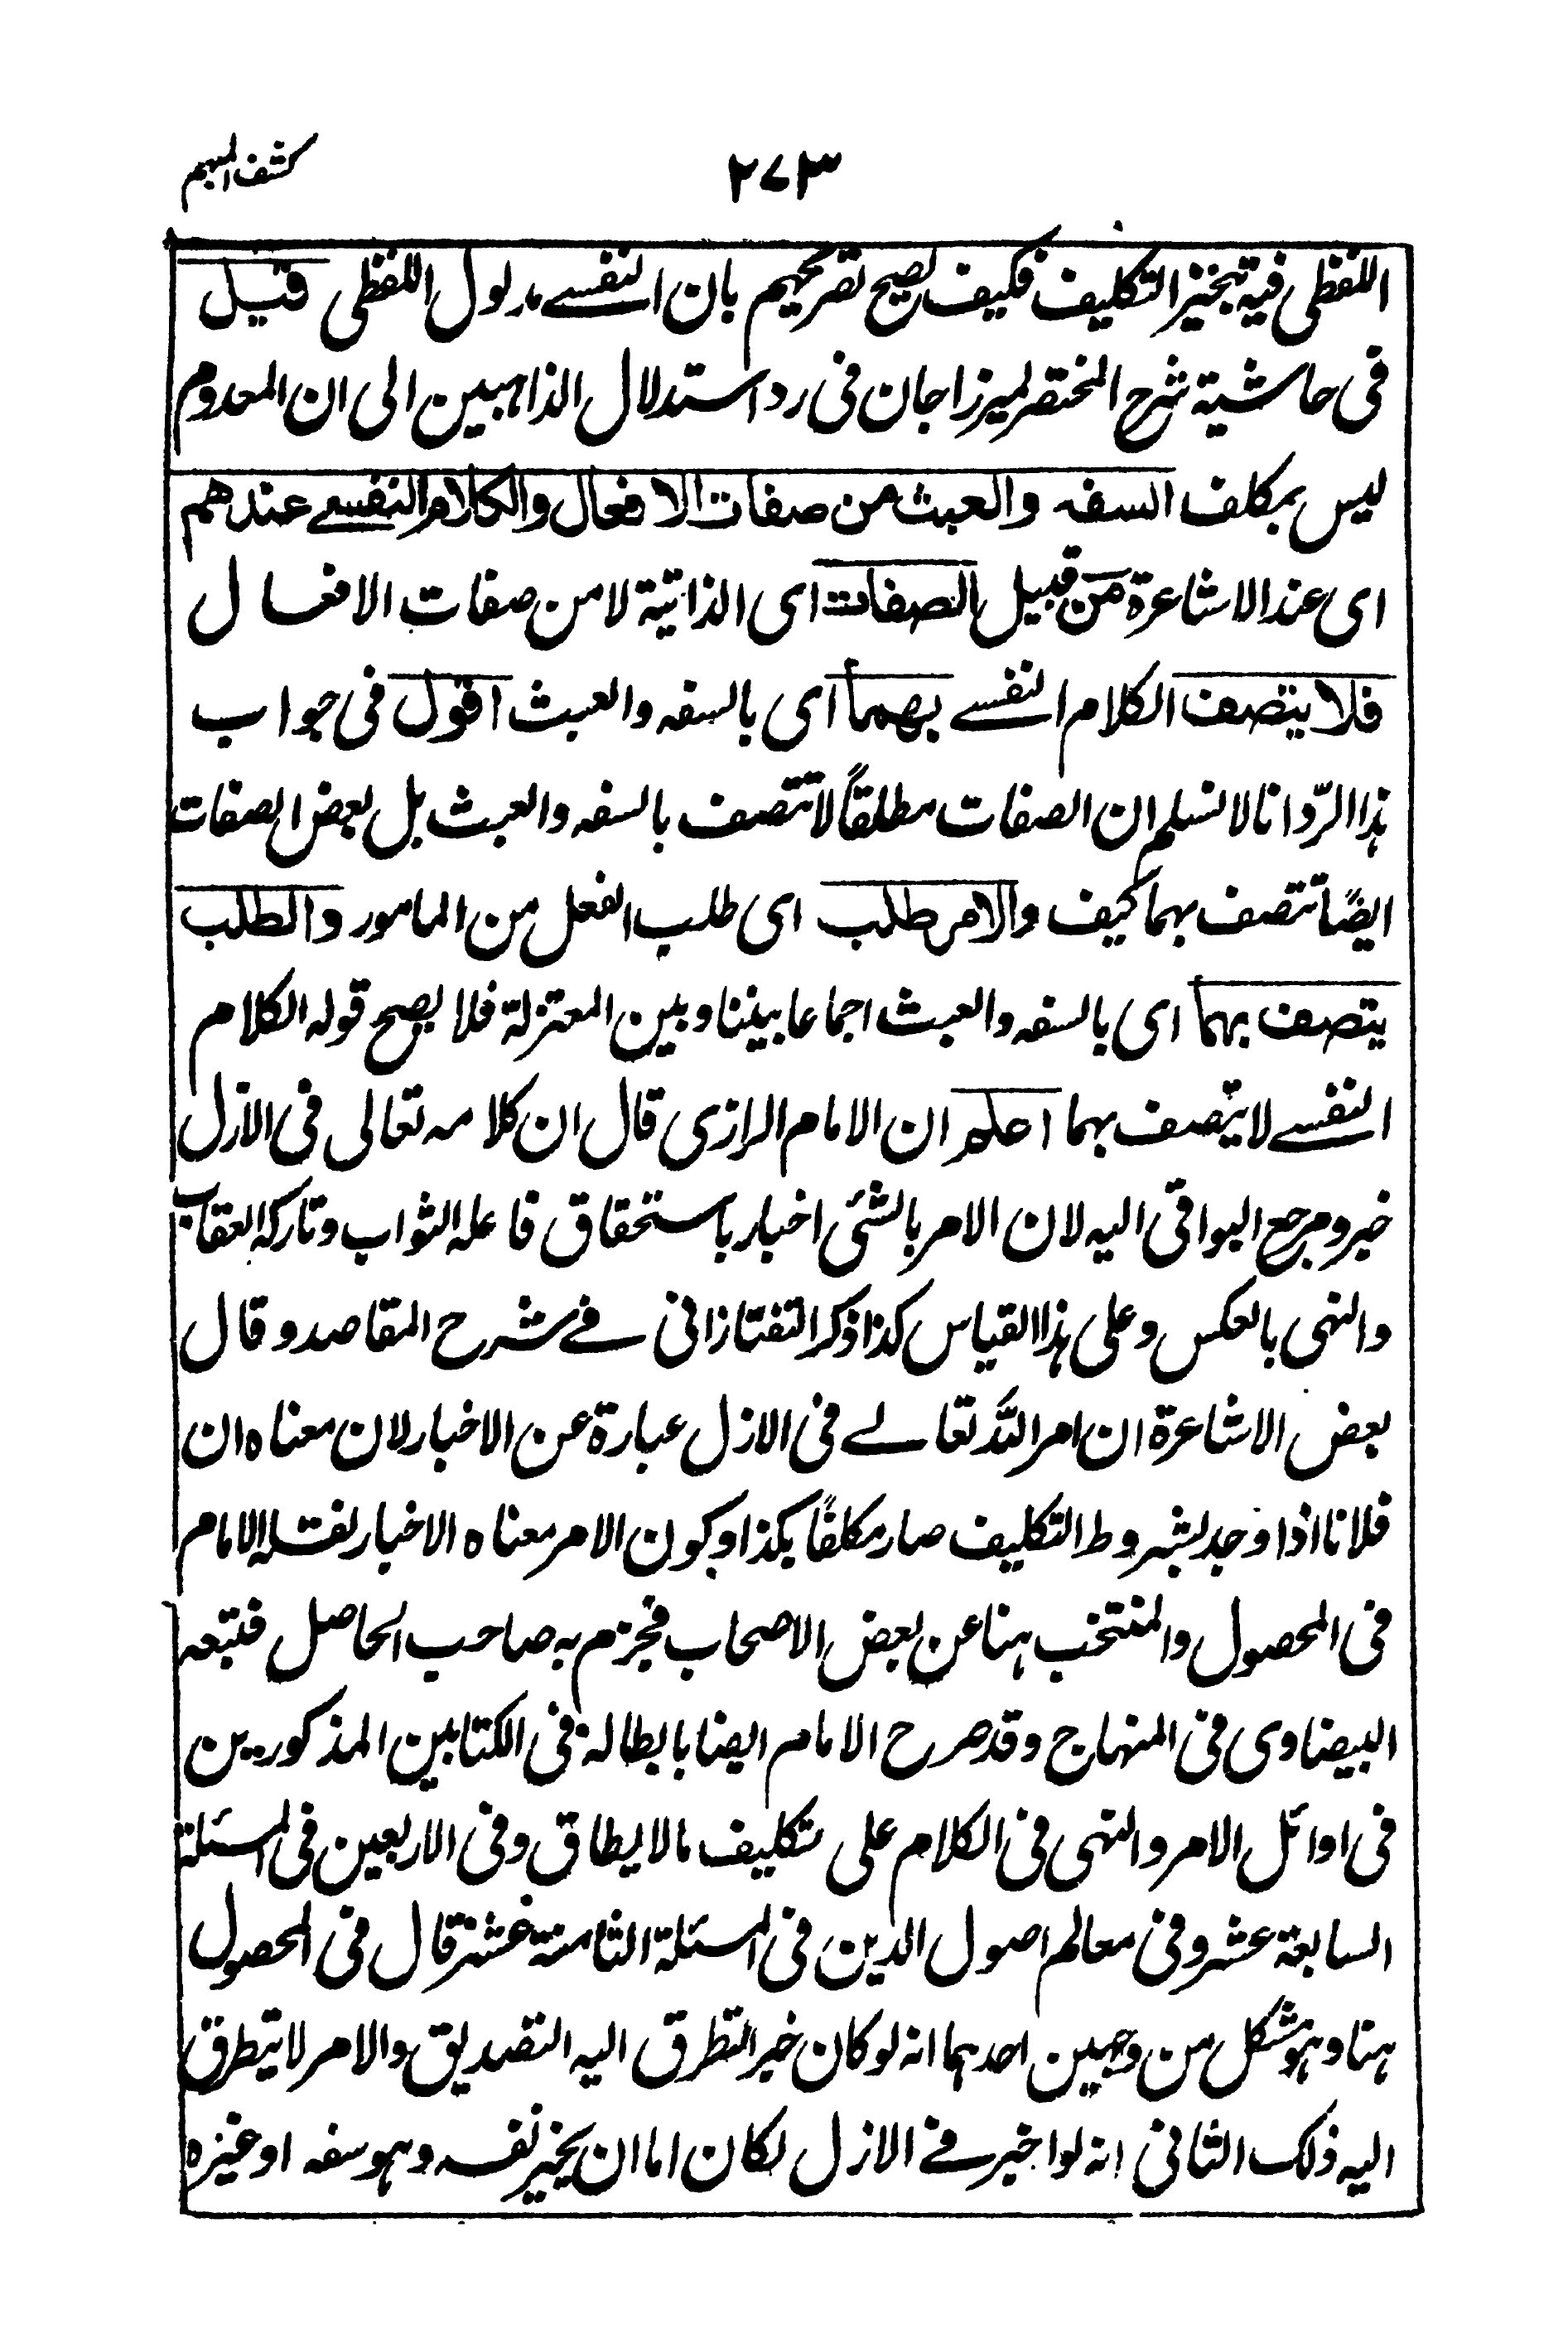 كشف المبهم
٢٧٣
اللفظى فيه تنجيز التكليف فكيف يصح تصريحهم بان النفسے مدلول اللفظى قيل
فى حاشية شرح المختصر لميرزاجان فى رد استدلال الذاهبين الى ان المعدوم
ليس بمكلف السفه والعبث من صفات الافعال والكلام النفسے عندهم
اى عند الاشاعرة من قبيل الصفات اى الذاتية لا من صفات الافعال
فلا يتصف الكلام النفسے بهما اى بالسفه والعبث اقول فى جواب
هذا الردّ انا لا نسلم ان الصفات مطلقاً لا تتصف بالسفه والعبث بل بعض الصفات
ايضًا تتصف بهما كيف والامر طلب اى طلب الفعل من المامور والطلب
يتصف بهما اى بالسفه والعبث اجماعا بيننا وبين المعتزلة فلا يصح قوله الكلام
النفسے لا يتصف بهما اعلم ان الامام الرازى قال ان كلامه تعالى فى الازل
خبر ومرجع البواقى اليه لان الامر بالشئى اخبار باستحقاق فاعله الثواب وتاركه العقاب
والنهى بالعكس وعلى هذا القياس كذا ذكر التفتازانى فے شرح المقاصد وقال
بعض الاشاعرة ان امر الله تعالے فى الازل عبارة عن الاخبار لان معناه ان
فلانا اذا وجد بشروط التكليف صار مكلفًا بكذا وكون الامر معناه الاخبار نقله الامام
فى المحصول والمنتخب هنا عن بعض الاصحاب فجزم به صاحب الحاصل فتبعه
البيضاوى فى المنهاج وقد صرح الامام ايضا بابطاله فى الكتابين المذكورين
فى اوائل الامر والنهى فى الكلام على تكليف مالا يطاق وفى الاربعين فى المسئلة
السابعة عشر وفى معالم اصول الدين فى المسئلة الثامنة عشر قال فى المحصول
هنا وهو مشكل من وجهين احدهما انه لو كان خبر التطرق اليه التصديق والامر لا يتطرق
اليه ذلك الثانى انه لو اخبر فے الازل لكان اما ان يخبر نفسه وهو سفه او غيره